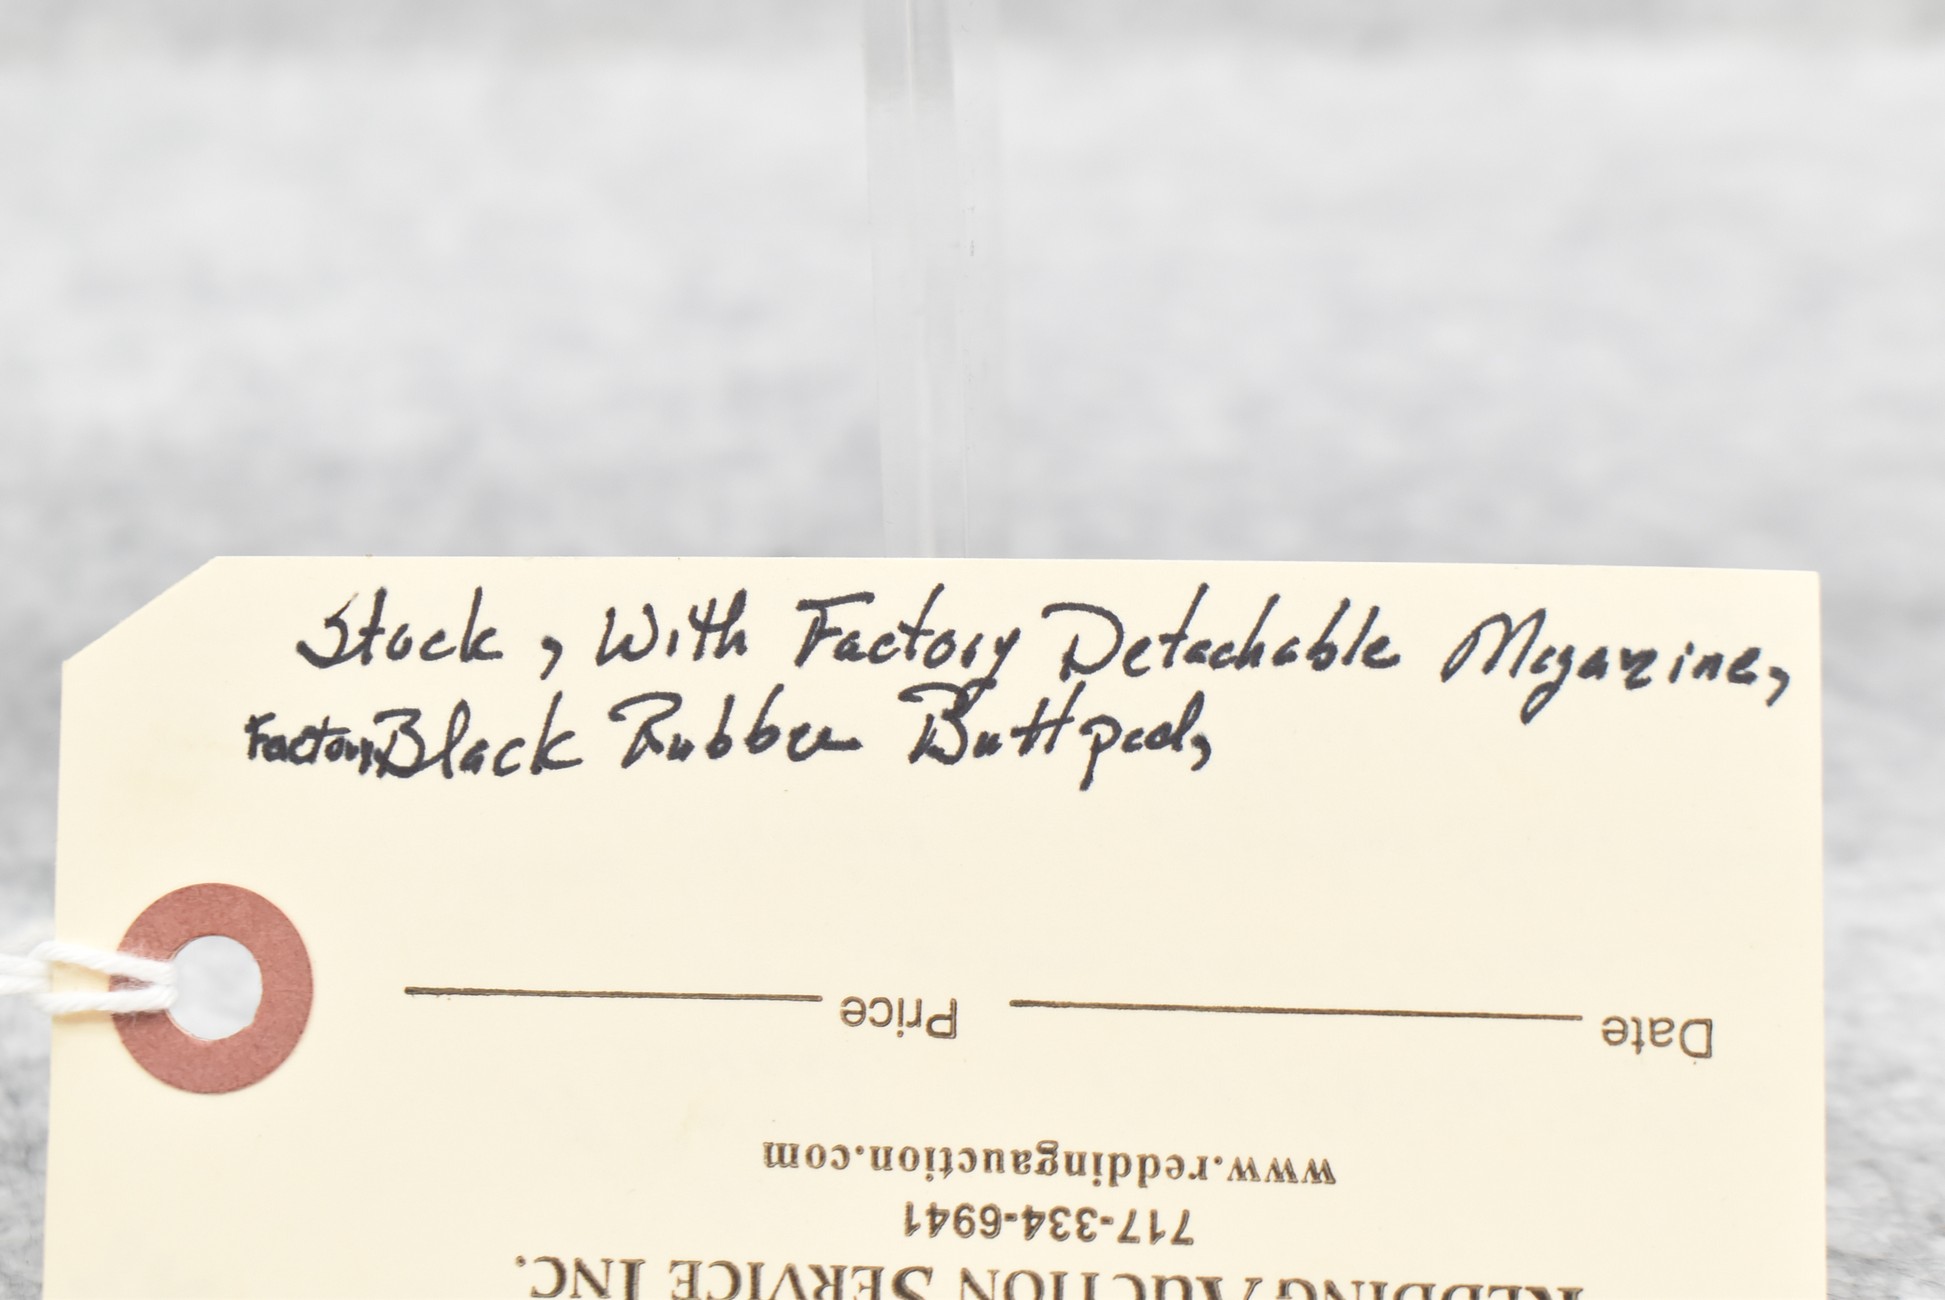 Stock, With Factory Detachable Magazine,
Factory Black Rubber Buttpad,
Price
Date
www.reddingauction.com
717-334-6941
REDDING AUCTION SERVICE INC.